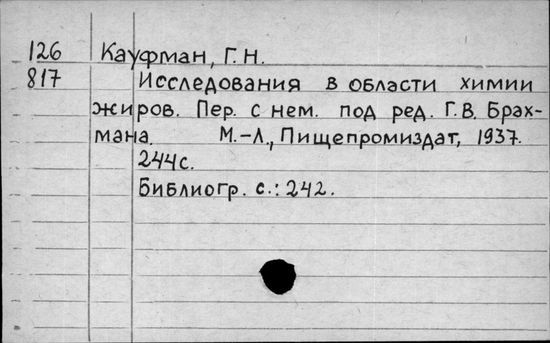 126 Кауфман, Г. Н.
817 Исследования в области химии
жиров. Пер. с нем. под ред. Г. В. Брах-
мана. М.-Л., Пищепромиздат, 1937.
244с.
Библиогр. с.: 242.